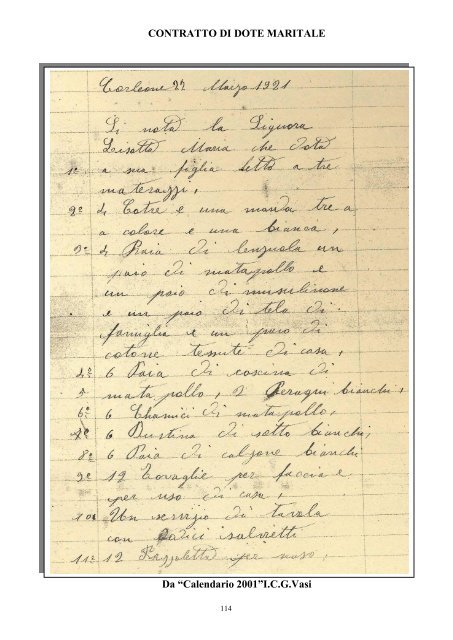 CONTRATTO DI DOTE MARITALE
Corleone 22 Marzo 1921
Si nota la Signora
Maria che dota
1º a sua figlia letto a tre
materazzi,
2º 4 Cotre e una manda tre a
a colore e una bianca,
3º 4 Paia di lenzuola un
paio di matapollo e
un paio di musulinone
e un paio di tela di
famiglia e un paio di
cotone tessuti di casa,
4º 6 Paia di coscina di
matapollo, 2 bianchi,
6º 6 Chamici di matapollo,
7º 6 Bustina di sotto bianchi,
8º 6 Paia di calzone bianchi
9º 12 Tovaglie per faccia e
per uso di casa,
10º Un servizio di tavola
con dodici salvietti
11º 12 per naso,
Da “Calendario 2001”I.C.G.Vasi
114